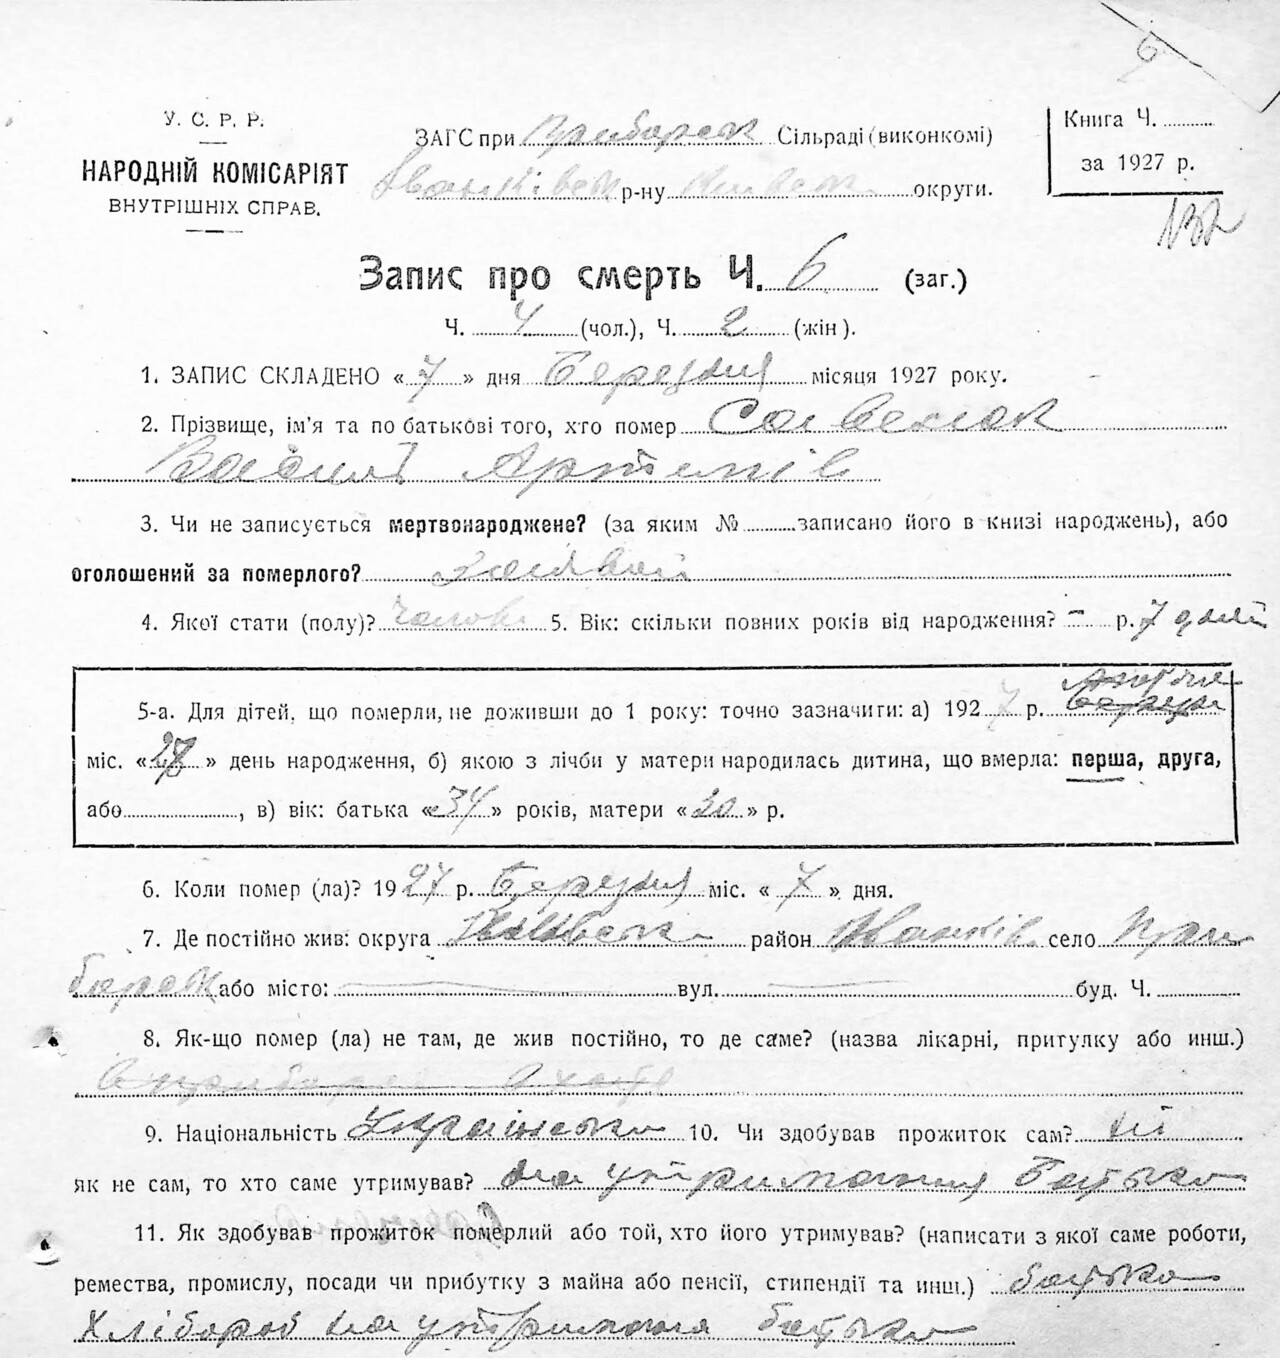 У. С. Р. Р.
НАРОДНІЙ КОМІСАРІЯТ
ВНУТРІШНІХ СПРАВ.
ЗАГС при Приборськ Сільраді (виконкомі)
Іванківськ р-ну Київськ округи.
Книга Ч. ..........
за 1927 р.
6
132
Запис про смерть Ч. 6 (заг.)
Ч. 4 (чол.), Ч. 2 (жін).
1. ЗАПИС СКЛАДЕНО « 7 » дня Березня місяця 1927 року.
2. Прізвище, ім'я та по батькові того, хто помер
Василь Артемів
3. Чи не записується мертвонароджене? (за яким № ......... записано його в книзі народжень), або
оголошений за померлого?
4. Якої стати (полу)? Чолов 5. Вік: скільки повних років від народження? – р. 7 дней
5-а. Для дітей, що померли, не доживши до 1 року: точно зазначити: а) 1927 р.
міс. « 27 » день народження, б) якою з лічби у матери народилась дитина, що вмерла: перша, друга,
або ............, в) вік: батька « 34 » років, матери « 30 » р.
6. Коли помер (ла)? 1927 р. Березня міс. « 7 » дня.
7. Де постійно жив: округа Київська район Іванків село При
борськ або місто: ............ вул. ............ буд. Ч. .........
8. Як-що помер (ла) не там, де жив постійно, то де саме? (назва лікарні, притулку або инш.)
9. Національність Українська 10. Чи здобував прожиток сам? ні
як не сам, то хто саме утримував? на утримання батька
11. Як здобував прожиток померлий або той, хто його утримував? (написати з якої саме роботи,
ремества, промислу, посади чи прибутку з майна або пенсії, стипендії та инш.) батько
Хлібороб на утриманя батька